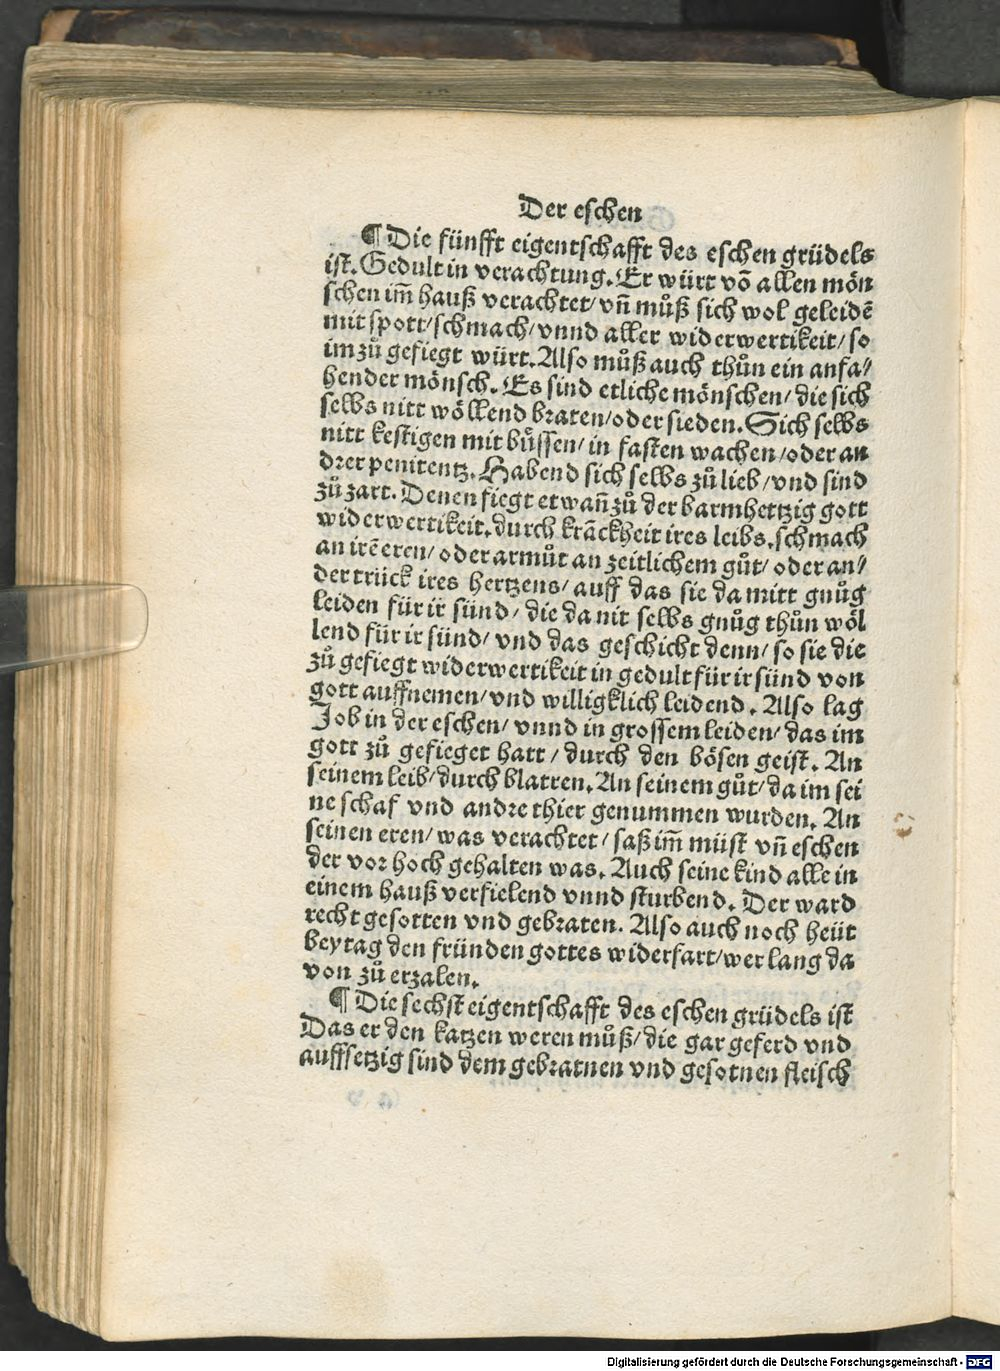 Der eschen
¶ Die fünfft eigentschafft des eschen grüdels
ist. Gedult in verachtung. Er würt võ allen mön
schen im̃ hauß verachtet/ vñ můß sich wol geleidẽ
mit spott/ schmach/ vnnd aller widerwertikeit/ so
im zů gefiegt würt. Also můß auch thůn ein anfa/
hender mönsch. Es sind etliche mönschen/ die sich
selbs nitt wöllend braten/ oder sieden. Sich selbs
nitt kestigen mit bůssen/ in fasten wachen/ oder an
drer penitentz. Habend sich selbs zů lieb/ vnd sind
zů zart. Denen fiegt etwañ zů der barmhettzig gott
widerwertikeit. durch krãckheit ires leibs. schmach
an irẽ eren/ oder armůt an zeitlichem gůt/ oder an/
der trück ires hertzens/ auff das sie da mitt gnůg
leiden für ir sünd/ die da nit selbs gnůg thůn wöl
lend für ir sünd/ vnd das geschicht denn/ so sie die
zů gefiegt widerwertikeit in gedult für ir sünd von
gott auffnemen/ vnd willigklich leidend. Also lag
Job in der eschen/ vnnd in grossem leiden/ das im
gott zů gefieget hatt/ durch den bösen geist. An
seinem leib/ durch blatren. An seinem gůt/ da im sei
ne schaf vnd andre thier genummen wurden. An
seinen eren/ was verachtet/ saß im̃ müst vñ eschen
der vor hoch gehalten was. Auch seine kind alle in
einem hauß verfielend vnnd sturbend. Der ward
recht gesotten vnd gebraten. Also auch noch heüt
bey tag den fründen gottes widerfart/ wer lang da
von zů erzalen.
¶ Die sechst eigentschafft des eschen grüdels ist
Das er den katzen weren můß/ die gar geferd vnd
auffsetzig sind dem gebratnen vnd gesotnen fleisch
Digitalisierung gefördert durch die Deutsche Forschungsgemeinschaft - DFG